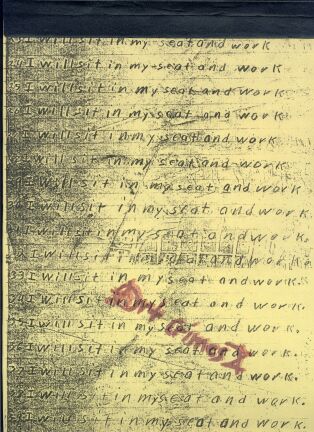 I will sit in my seat and work
I will sit in my seat and work
I will sit in my seat and work
I will sit in my seat and work
I will sit in my seat and work
I will sit in my seat and work
I will sit in my seat and work
I will sit in my seat and work.
I will sit in my seat and work.
I will sit in my seat and work.
33 I will sit in my seat and work.
I will sit in my seat and work.
I will sit in my seat and work.
I will sit in my seat and work.
I will sit in my seat and work.
I will sit in my seat and work.
I will sit in my seat and work.